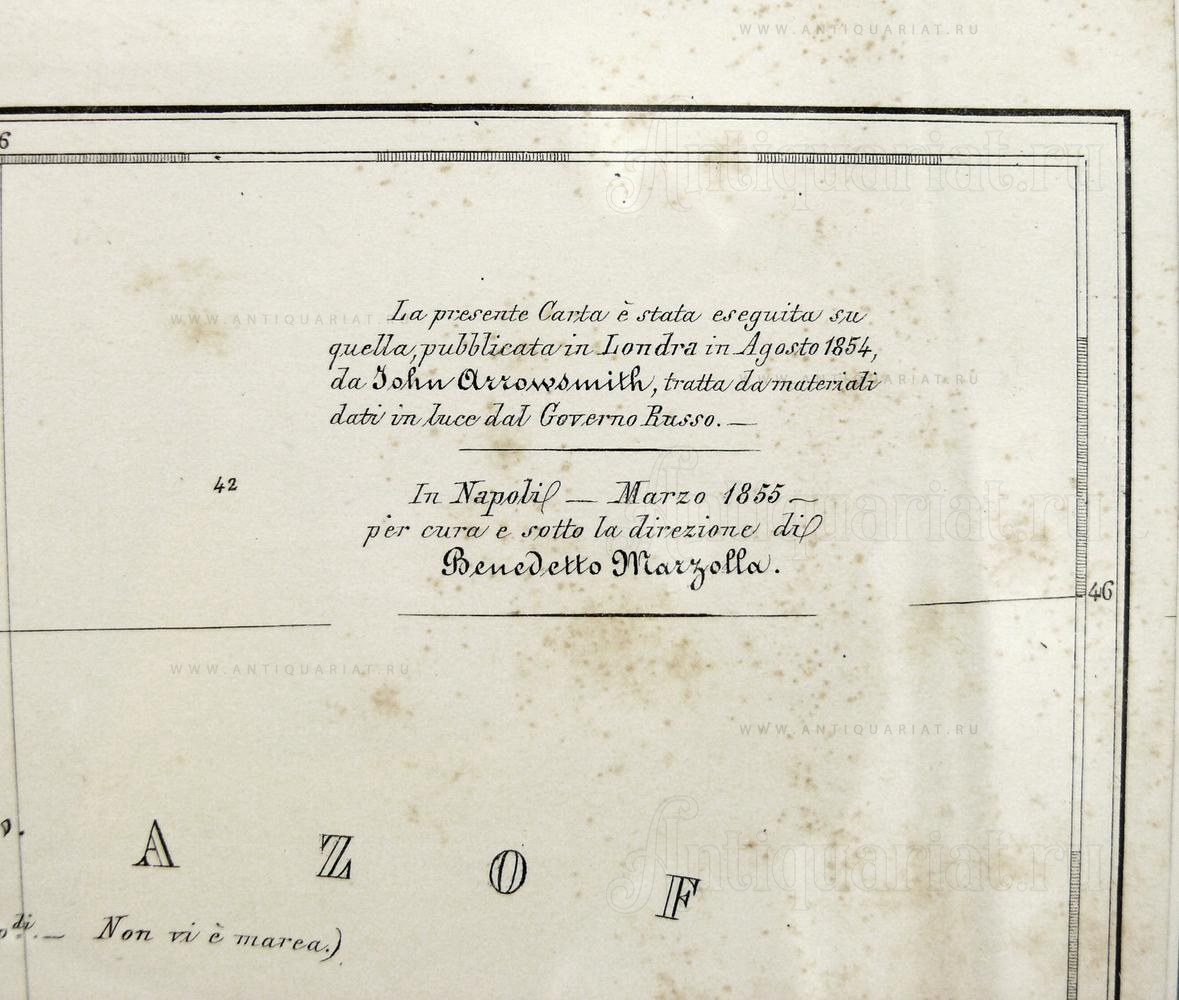 WWW.ANTIQUARIAT.RU
6
Antiquariat.ru
La presente Carta è stata eseguita su
WWW.ANTIQUARIAT.RU
quella, pubblicata in Londra in Agosto 1854,
da John Arrowsmith, tratta da materiali
WWW.ANTIQUARIAT.RU
dati in luce dal Governo Russo. —
42
In Napoli — Marzo 1855 —
Antiquariat.ru
per cura e sotto la direzione di
Benedetto Marzolla.
46
WWW.ANTIQUARIAT.RU
WWW.ANTIQUARIAT.RU
AZOF
Antiquariat.ru
di. — Non vi è marea.)